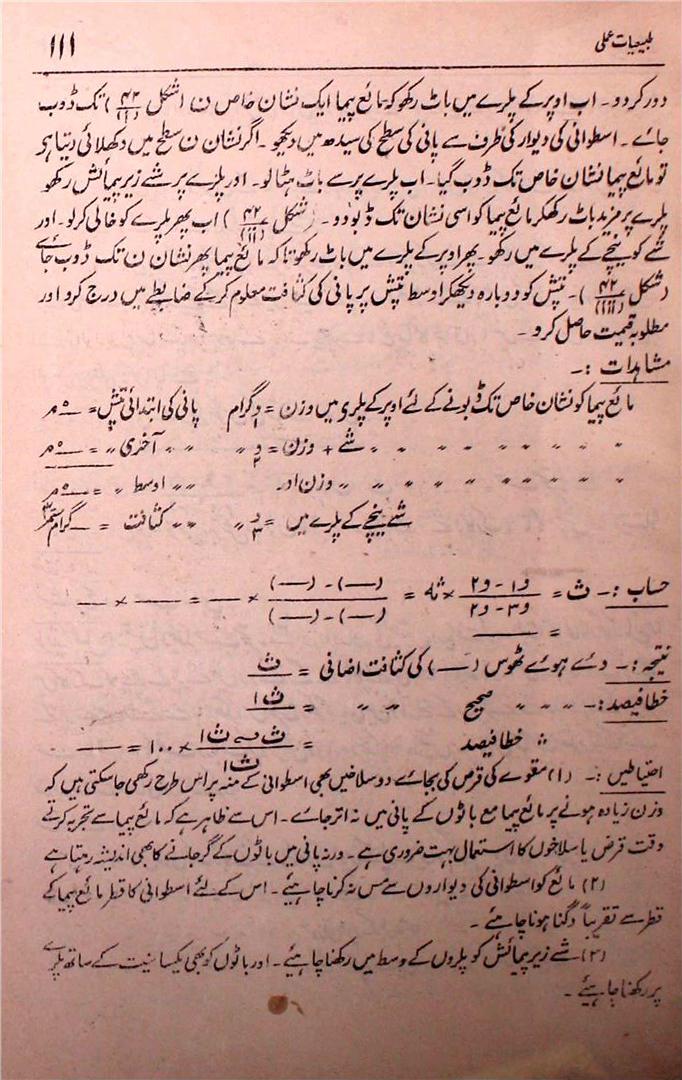 طبیعیات عملی ۱۱۱
دور کردو۔ اب اوپر کے پلڑے میں باٹ رکھو کہ مائع پیما ایک نشان خاص ن (شکل ۴۲/(i)) تک ڈوب
جائے۔ اسطوانی کی دیوار کی طرف سے پانی کی سطح کی سیدھ میں دیکھو۔ اگر نشان ن سطح میں دکھلائی دیتا ہو
تو مائع پیما نشان خاص تک ڈوب گیا۔ اب پلڑے پر سے باٹ ہٹالو۔ اور پلڑے پر شے زیر پیمائش رکھو
پلڑے پر مزید باٹ رکھکر مائع پیما کو اسی نشان تک ڈبودو۔ (شکل ۴۲/(ii)) اب پھر پلڑے کو خالی کرلو۔ اور
شے کو نیچے کے پلڑے میں رکھو۔ پھر اوپر کے پلڑے میں باٹ رکھو تاکہ مائع پیما پھر نشان ن تک ڈوب جائے
(شکل ۴۲/(iii))۔ تپش کو دوبارہ دیکھکر اوسط تپش پر پانی کی کثافت معلوم کرکے ضابطے میں درج کرو اور
مطلوبہ قیمت حاصل کرو۔
مشاہدات :۔
مائع پیما کو نشان خاص تک ڈبونے کے لئے اوپر کے پلڑی میں وزن = و۱ گرام پانی کی ابتدائی تپش = —°م
〃 〃 〃 〃 〃 〃 〃 〃 شے + وزن = و۲ 〃 〃 〃 آخری 〃 = —°م
〃 〃 〃 〃 〃 〃 〃 〃 وزن اور 〃 〃 اوسط 〃 = —°م
شے نیچے کے پلڑے میں = و۳ 〃 〃 〃 کثافت = — گرام/سمر۳
حساب :۔ ث = (و۱ - و۲)/(و۳ - و۲) × ثہ = ((—) - (—))/((—) - (—)) × — = — × —
= ———
نتیجہ :۔ دئے ہوئے ٹھوس (—) کی کثافت اضافی = ث
خطا فیصد :۔ 〃 〃 〃 〃 صحیح 〃 〃 = ث۱
∴ خطا فیصد = (ث ~ ث۱)/ث۱ × ۱۰۰ = ——
احتیاطیں :۔ (۱) مقوے کی قرص کی بجائے دو سلاخیں بھی اسطوانی کے منہ پر اس طرح رکھی جاسکتی ہیں کہ
وزن زیادہ ہونے پر مائع پیما مع باٹوں کے پانی میں نہ اتر جائے۔ اس سے ظاہر ہے کہ مائع پیما سے تجربہ کرتے
وقت قرض یا سلاخوں کا استمال بہت ضروری ہے۔ ورنہ پانی میں باٹوں کے گر جانے کا بھی اندیشہ رہتا ہے
(۲) مائع کو اسطوانی کی دیواروں سے مس نہ کرنا چاہیئے۔ اس کے لئے اسطوانی کا قطر مائع پیما کے
قطر سے تقریباً دگنا ہونا چاہئے۔
(۳) شے زیر پیمائش کو پلڑوں کے وسط میں رکھنا چاہیئے۔ اور باٹوں کو بھی یکسانیت کے ساتھ پلڑے
پر رکھنا چاہیئے۔